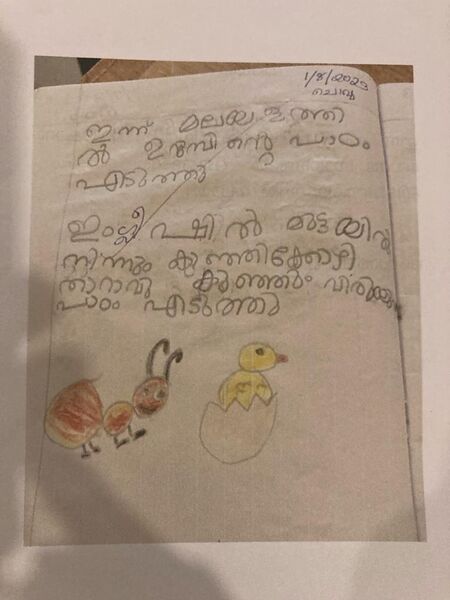 1/8/2023
ചൊവ്വ
ഇന്ന് മലയളത്തി
ൽ ഉറുമ്പിന്റെ പാഠം
എടുത്തു
ഇംഗ്ലീഷിൽ മുട്ടയിൽ
നിന്നും കുഞ്ഞിക്കോഴി
താറാവു കുഞ്ഞും വിരിയുന്ന
പാഠം എടുത്തു